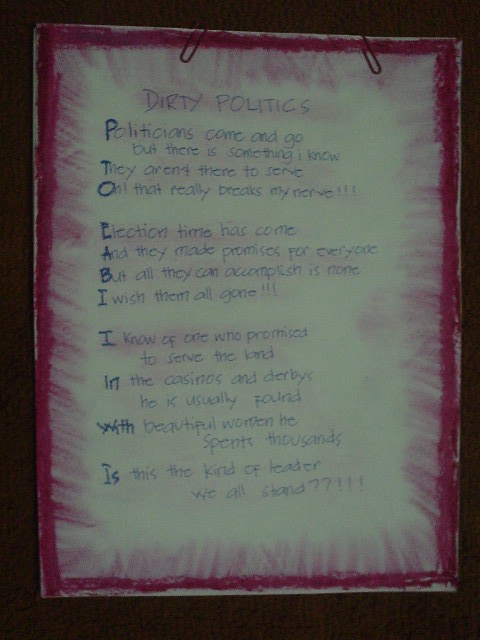 DIRTY POLITICS
Politicians come and go
but there is something i know
They aren't there to serve
Oh! that really breaks my nerve!!!
Election time has come
And they made promises for everyone
But all they can accomplish is none
I wish them all gone!!!
I know of one who promised
to serve the land
In the casinos and derbys
he is usually found
With beautiful women he
spents thousands
Is this the kind of leader
we all stand??!!!